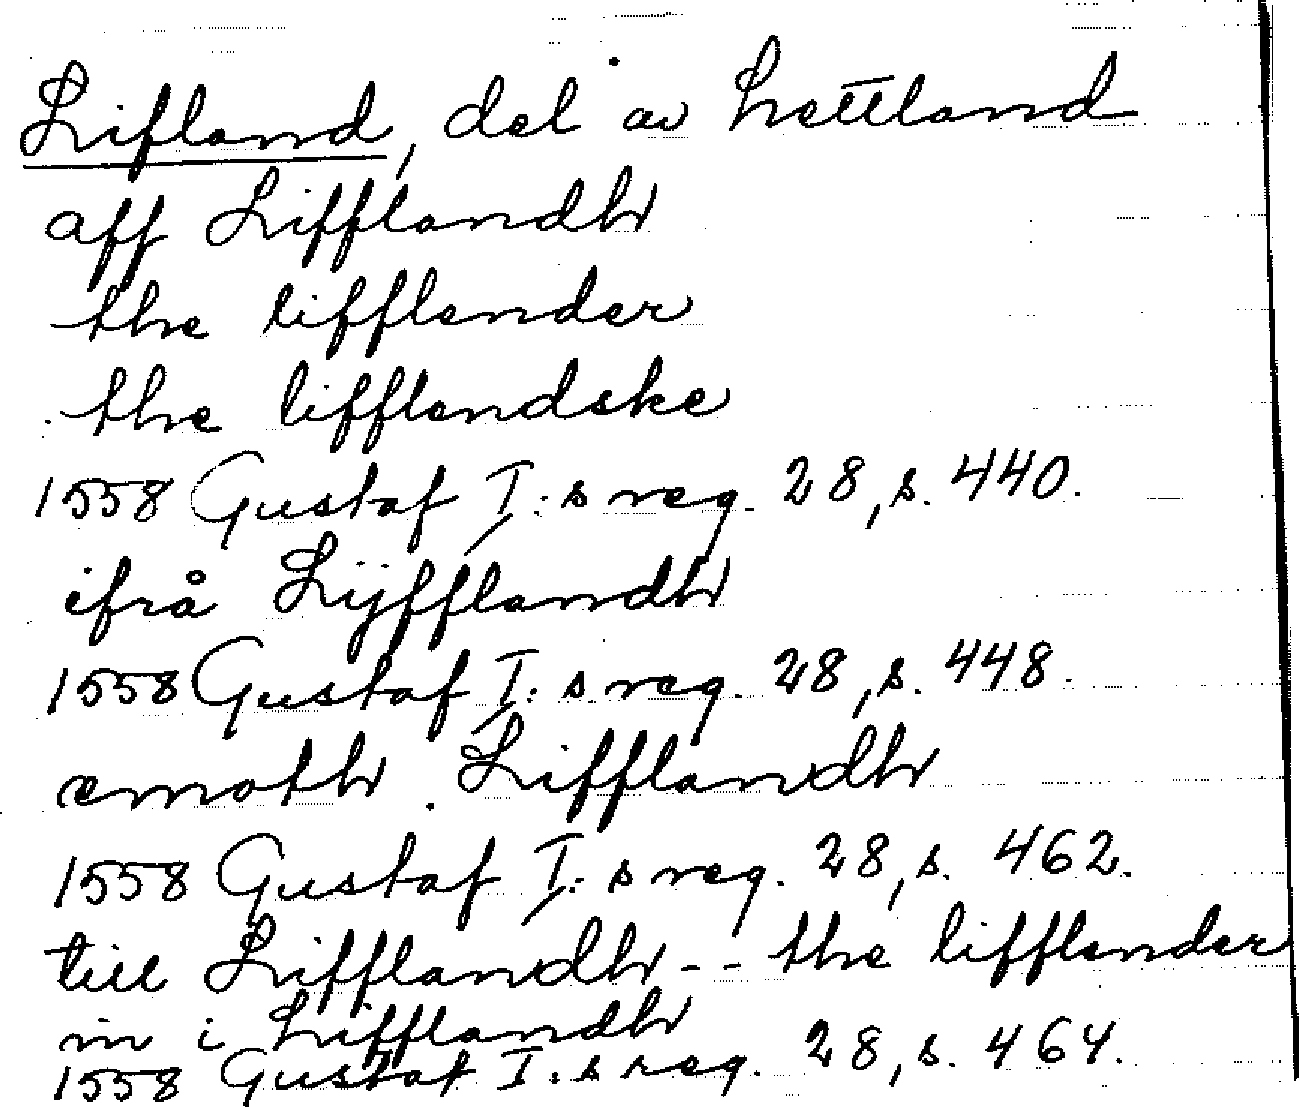 Lifland, del av Lettland
aff Lifflandh
the lifflender
the lifflendske
1558 Gustaf I:s reg. 28, s. 440.
ifrå Lÿfflandh
1558 Gustaf I:s reg. 28, s. 448.
emoth Lifflandh
1558 Gustaf I:s reg. 28, s. 462.
till Lifflandh -- the lifflender
in i Lifflandh
1558 Gustaf I:s reg. 28, s. 464.